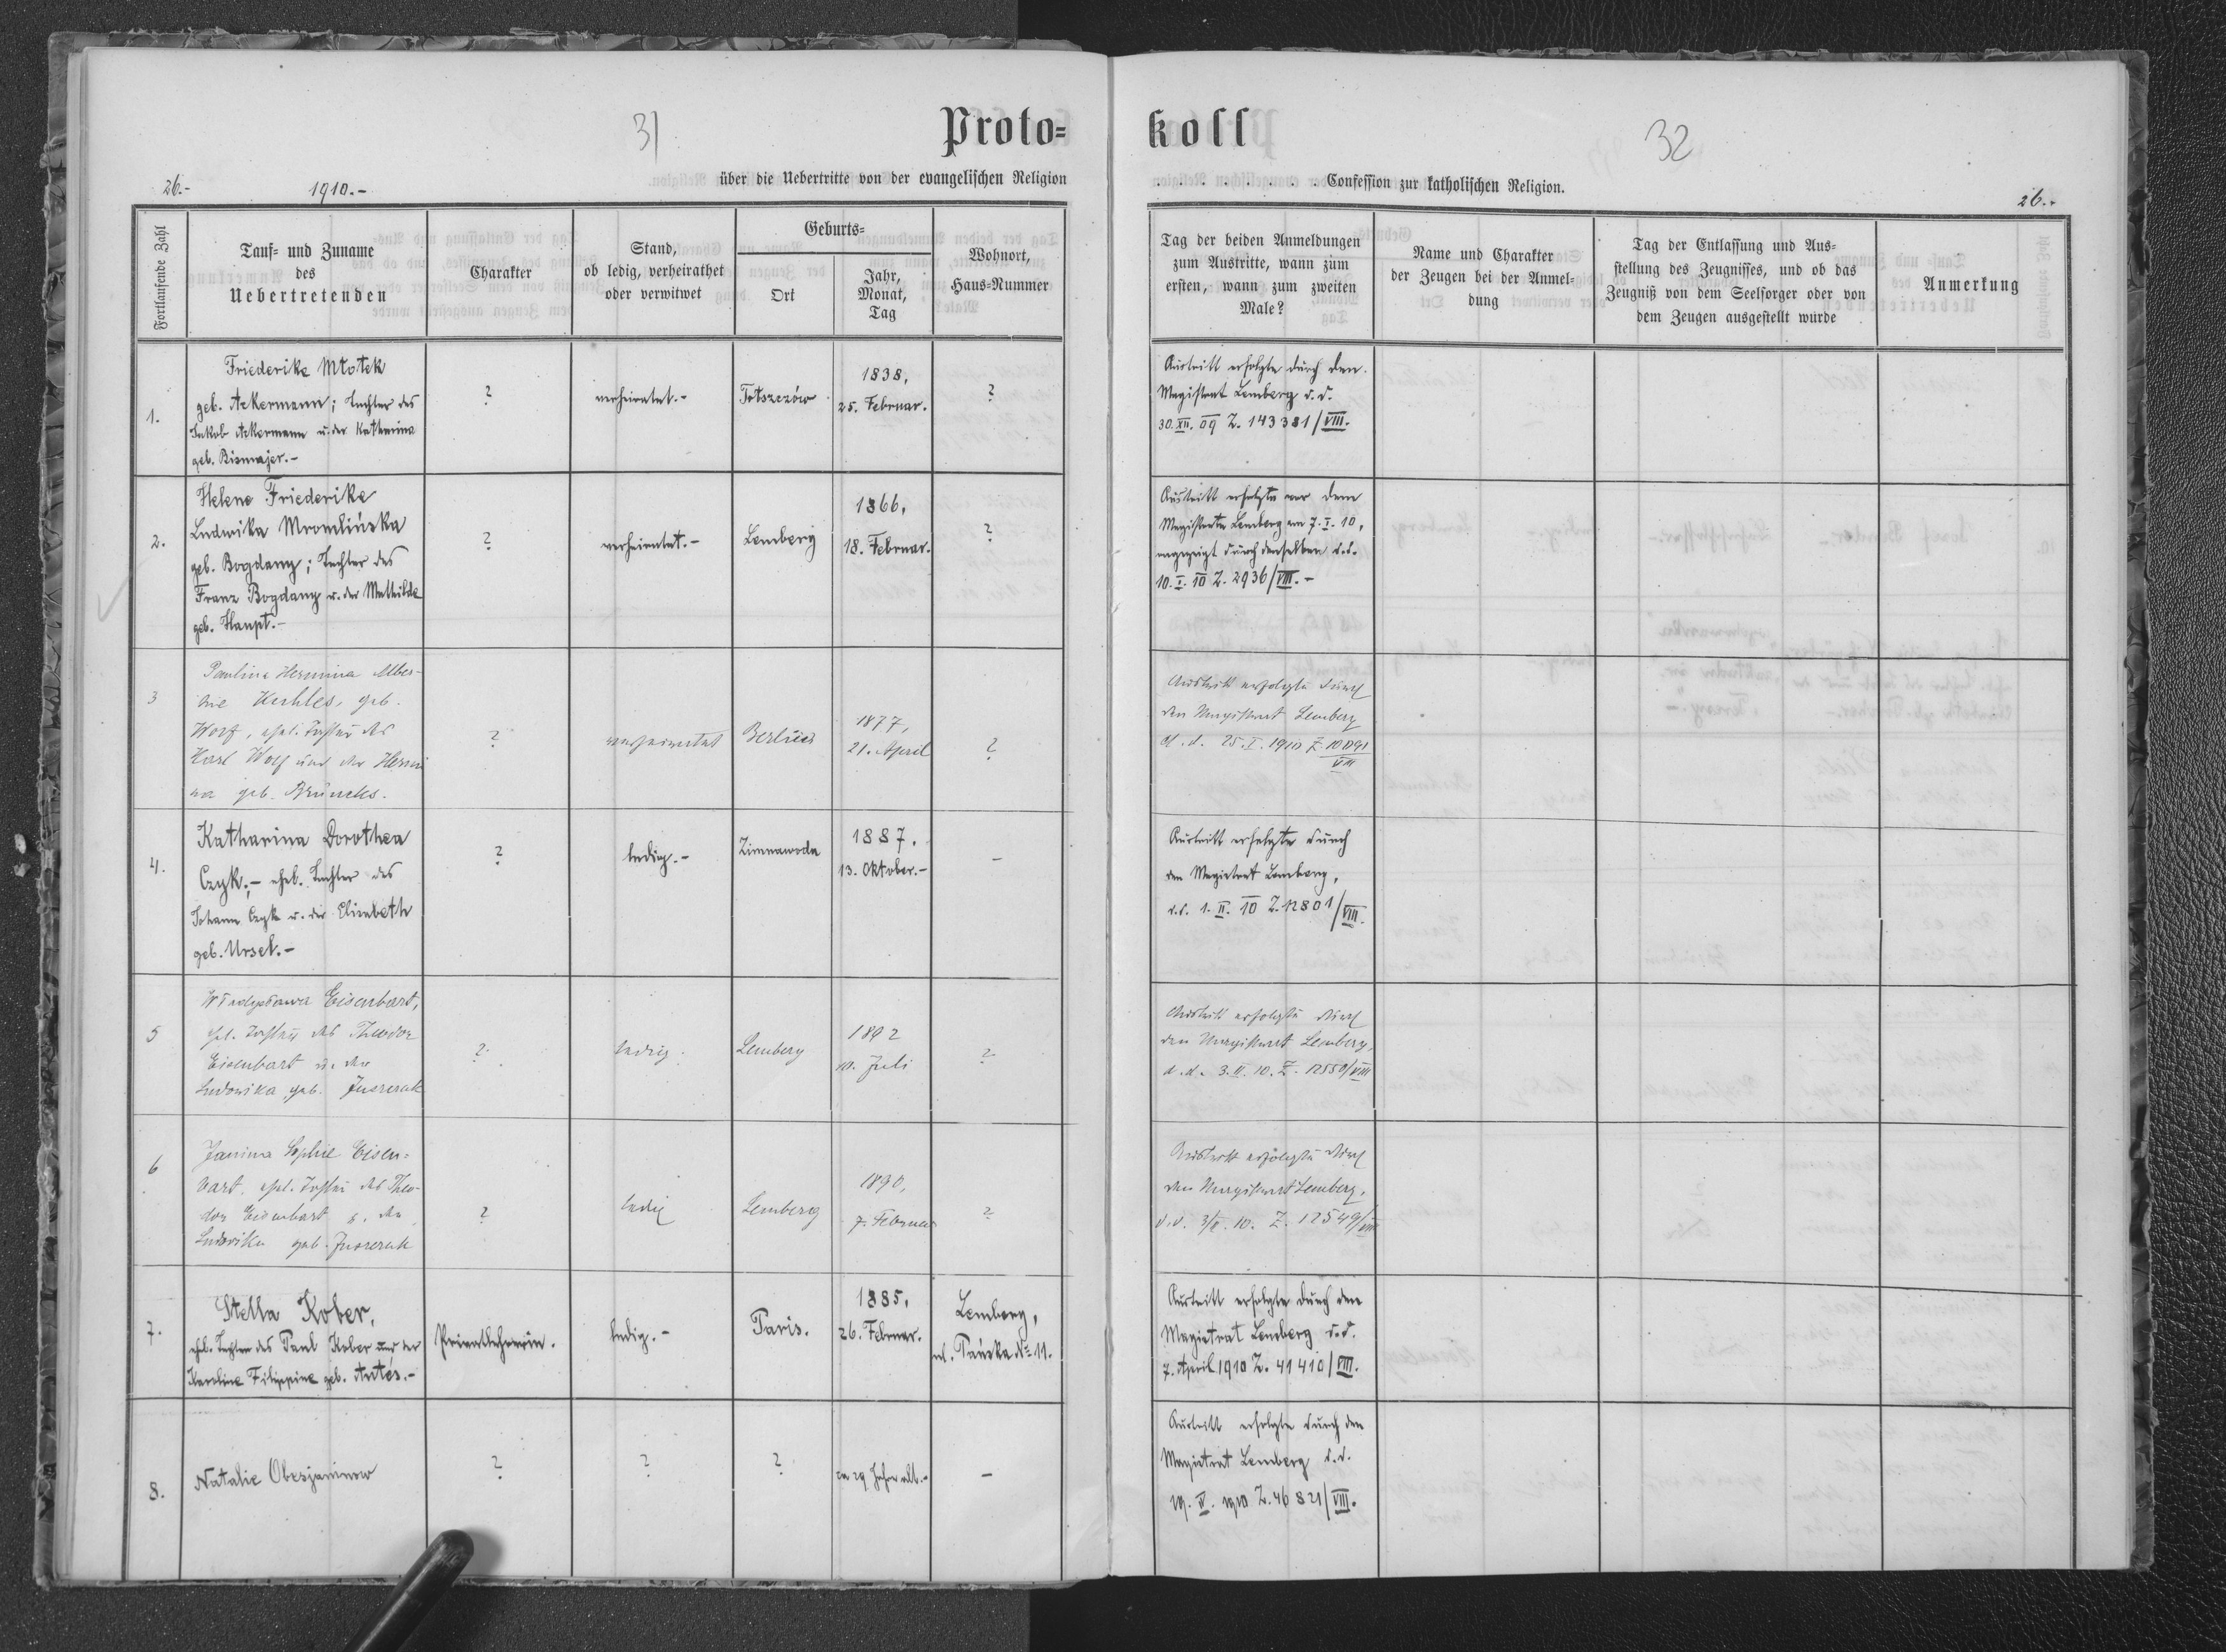 31
Proto=
26.-
1910.-
über die Uebertritte von der evangelischen Religion
Fortlaufende Zahl
Tauf- und Zuname
des
Uebertretenden
Charakter
Stand,
ob ledig, verheirathet
oder verwitwet
Geburts=
Ort
Jahr,
Monat,
Tag
Wohnort,
Haus=Nummer
1.
Friederike Młotek
geb. Ackermann; Tochter des
Jakob Ackermann u. der Katharina
geb. Bismajer.-
?
verheiratet.-
1838,
25. Februar.
?
2.
Helene Friederike
Ludwika Mromlińska
geb. Bogdany; Tochter des
Franz Bogdany u. der Mathilde
geb. Haupt.-
?
verheiratet.-
Lemberg
1866,
18. Februar.
?
3
Paulina Hermina Alber-
geb.
Worf, ehel. Tochter des
Karl Worf und der Hermi
na geb.
?
verheiratet
1877,
21. April
?
4.
Katharina Dorothea
Czyk;- ehel. Tochter des
Johann Czyk u. der Elisabeth
geb. Ursel.-
?
ledig.-
Zimnawoda
1887.
13. Oktober.-
-
5
Władysława Eisenbart,
ehl. Tochter des Theodor
Eisenbart u. der
Ludowika, geb.
?
ledig.
Lemberg
1892
10. Juli
?
6
Janina Sophie Eisen=
bart, ehel. Tochter des Theo-
dor Eisenbart u. der
Ludovika geb.
?
ledig
Lemberg
1890,
7. Februar
?
7.
Stella Kober,
ehel. Tochter des Paul Kober und der
Karoline Filippine geb. Antés.-
Privatlehrerin.
ledig.-
Paris.
1885,
26. Februar.
Lemberg,
ul. Pańska No 11.
8.
Natalie Obesjaninow
?
?
?
ca 29 Jahre alt.-
-
koll
32
. . . . . . . . . Confession zur katholischen Religion.
26..
Tag der beiden Anmeldungen
zum Austritte, wann zum
ersten, wann zum zweiten
Male?
Name und Charakter
der Zeugen bei der Anmel-
dung
Tag der Entlassung und Aus-
stellung des Zeugnisses, und ob das
Zeugniß von dem Seelsorger oder von
dem Zeugen ausgestellt wurde
Anmerkung
Austritt erfolgte durch den
Magistrat Lemberg d.d.
30.XII.09 Z. 143381/VIII.
Austritt erfolgte vor dem
Magistrate Lemberg am 7.I.10,
angezeigt durch denselben d.d.
10.I.10 Z. 2936/VIII.-
Austritt erfolgte durch
den Magistrat Lemberg
d.d. 25.I.1910 Z.
VIII
Austritt erfolgte durch
den Magistrat Lemberg,
d.d. 1.II.10 Z.12801/VIII.
Austritt erfolgte durch
den Magistrat Lemberg,
d.d. 3.II.10. Z. 12550/VIII
Austritt erfolgte durch
den Magistrat Lemberg,
d.d. 3/II.10. Z. 12549/VIII
Austritt erfolgte durch den
Magistrat Lemberg d.d.
7. April 1910 Z. 41410/VIII.
Austritt erfolgte durch den
Magistrat Lemberg d.d.
19.IV.1910 Z.46821/VIII.